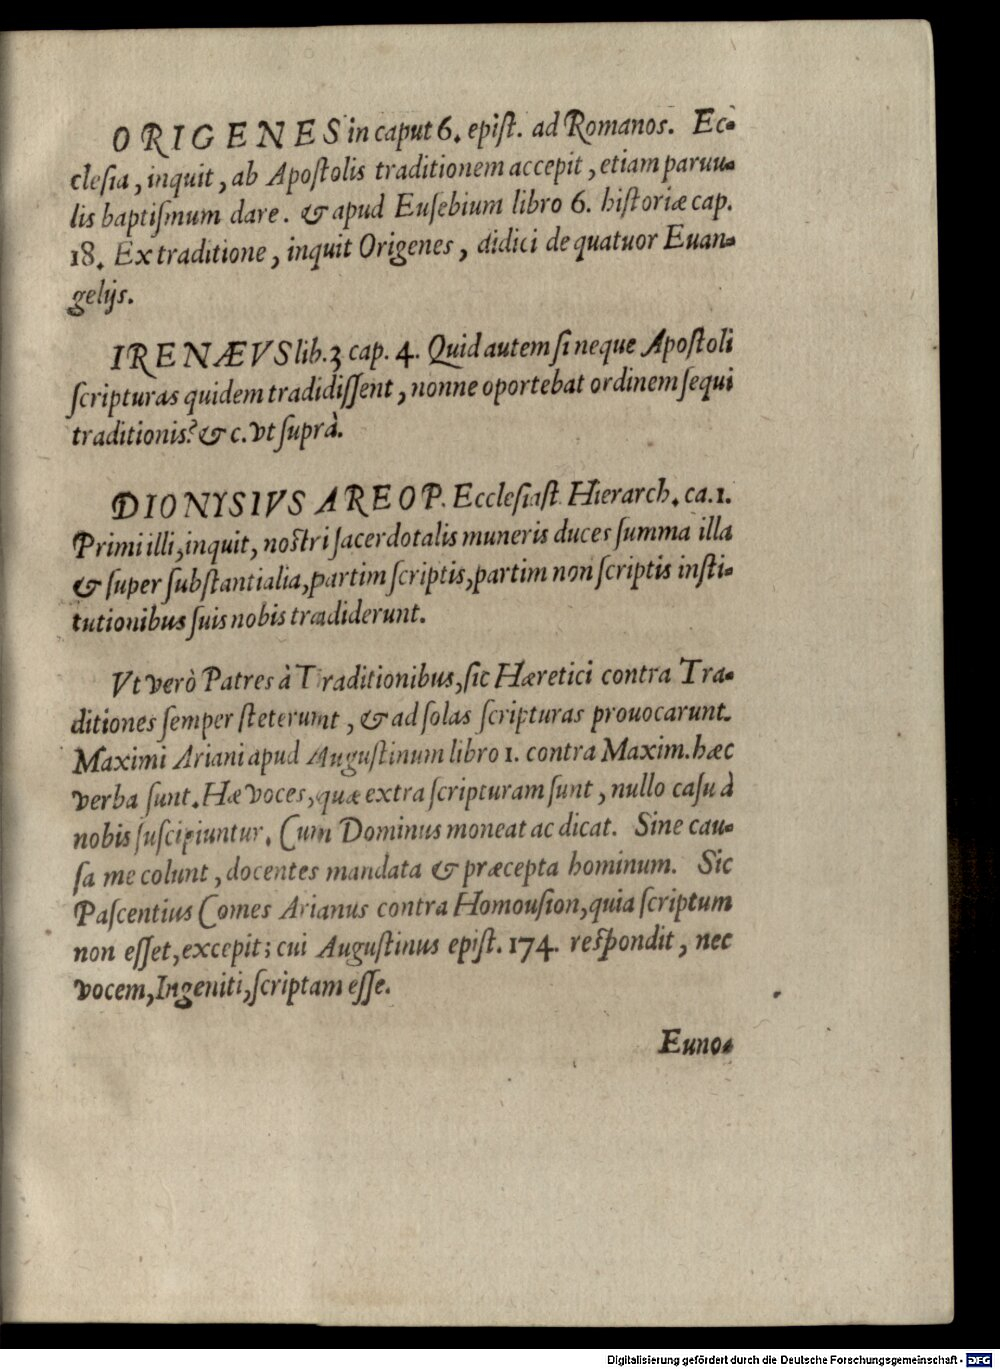 ORIGENES in caput 6. epiſt. ad Romanos. Ec-
cleſia, inquit, ab Apoſtolis traditionem accepit, etiam paruu-
lis baptiſmum dare. & apud Euſebium libro 6. hiſtoriæ cap.
18. Ex traditione, inquit Origenes, didici de quatuor Euan-
gelijs.
IRENÆVS lib. 3 cap. 4. Quid autem ſi neque Apoſtoli
ſcripturas quidem tradidiſſent, nonne oportebat ordinem ſequi
traditionis? & c. vt ſuprà.
DIONYSIVS AREOP. Eccleſiaſt. Hierarch. ca. 1.
Primi illi, inquit, noſtri ſacerdotalis muneris duces ſumma illa
& ſuper ſubſtantialia, partim ſcriptis, partim non ſcriptis inſti-
tutionibus ſuis nobis tradiderunt.
Vt verò Patres à Traditionibus, ſic Hæretici contra Tra-
ditiones ſemper ſteterunt, & ad ſolas ſcripturas prouocarunt.
Maximi Ariani apud Auguſtinum libro 1. contra Maxim. hæc
verba ſunt. Hæ voces, quæ extra ſcripturam ſunt, nullo caſu à
nobis ſuſcipiuntur. Cum Dominus moneat ac dicat. Sine cau-
ſa me colunt, docentes mandata & præcepta hominum. Sic
Paſcentius Comes Arianus contra Homouſion, quia ſcriptum
non eſſet, excepit; cui Auguſtinus epiſt. 174. reſpondit, nec
vocem, Ingeniti, ſcriptam eſſe.
Euno-
Digitalisierung gefördert durch die Deutsche Forschungsgemeinschaft - DFG